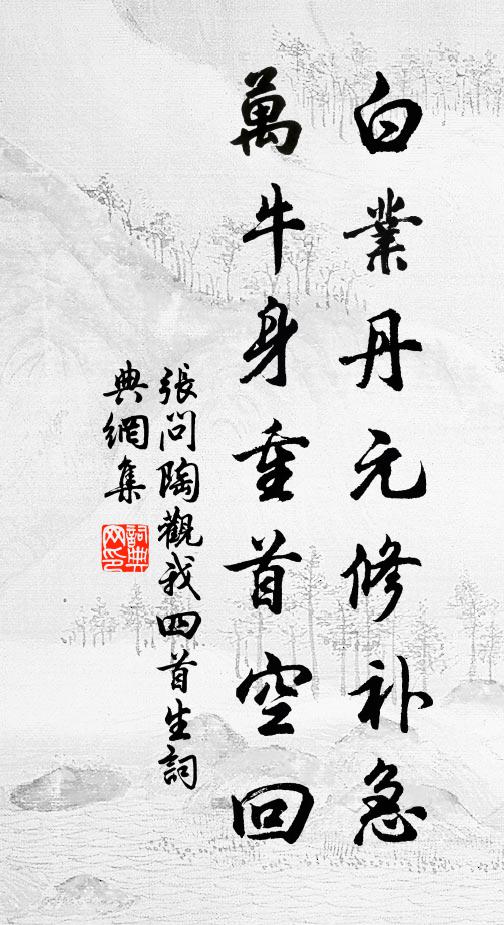 白業丹元修补急
萬牛身重首空回
張問陶觀我四首生詞
典網集
詞典
网印